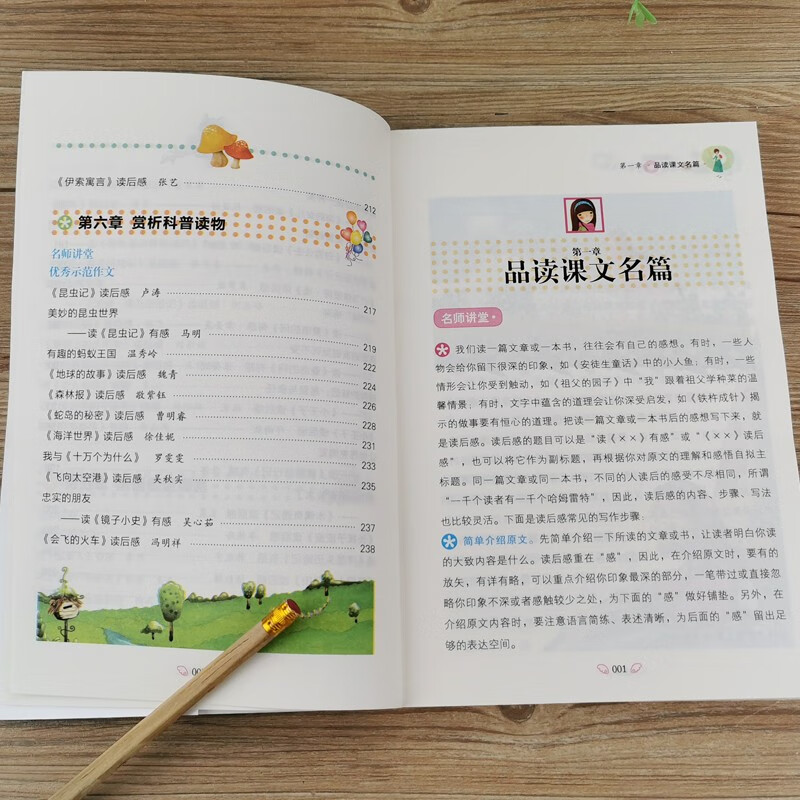 《伊索寓言》读后感 张艺 212
第六章 赏析科普读物
名师讲堂
优秀示范作文
《昆虫记》读后感 卢涛 217
美妙的昆虫世界
——读《昆虫记》有感 马明 219
有趣的蚂蚁王国 温秀岭 222
《地球的故事》读后感 魏青 224
《森林报》读后感 敬紫钰 226
《蛇岛的秘密》读后感 曹明睿 228
《海洋世界》读后感 徐佳妮 231
我与《十万个为什么》 罗雯雯 233
《飞向太空港》读后感 吴秋实 235
忠实的朋友
——读《镜子小史》有感 吴心茹 237
《会飞的火车》读后感 冯明祥 238
第一章 品读课文名篇
第一章
品读课文名篇
名师讲堂
我们读一篇文章或一本书，往往会有自己的感想。有时，一些人
物会给你留下很深的印象，如《安徒生童话》中的小人鱼；有时，一些
情形会让你受到触动，如《祖父的园子》中“我”跟着祖父学种菜的温
馨情景；有时，文字中蕴含的道理会让你深受启发，如《铁杵成针》揭
示的做事要有恒心的道理。把读一篇文章或一本书后的感想写下来，就
是读后感。读后感的题目可以是“读《××》有感”或“《××》读后
感”，也可以将它作为副标题，再根据你对原文的理解和感悟自拟主
标题。同一篇文章或同一本书，不同的人读后的感受不尽相同，所谓
“一千个读者有一千个哈姆雷特”，因此，读后感的内容、步骤、写法
也比较灵活。下面是读后感常见的写作步骤：
简单介绍原文。先简单介绍一下所读的文章或书，让读者明白你读
的大致内容是什么。读后感重在“感”，因此，在介绍原文时，要有的
放矢，有详有略，可以重点介绍你印象最深的部分，一笔带过或直接忽
略你印象不深或者感触较少之处，为下面的“感”做好铺垫。另外，在
介绍原文内容时，要注意语言简练、表述清晰，为后面的“感”留出足
够的表达空间。
001